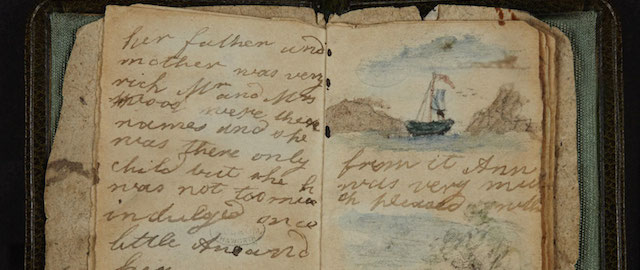 her father and
mother was very
rich Mr and Mrs
Wood were there
names and she
was there only
child but she h
was not too muc
indulged once
little Ane and
her
from it Ann
was very mu
ch pleased with